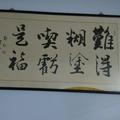 難得
糊塗
喫虧
是福